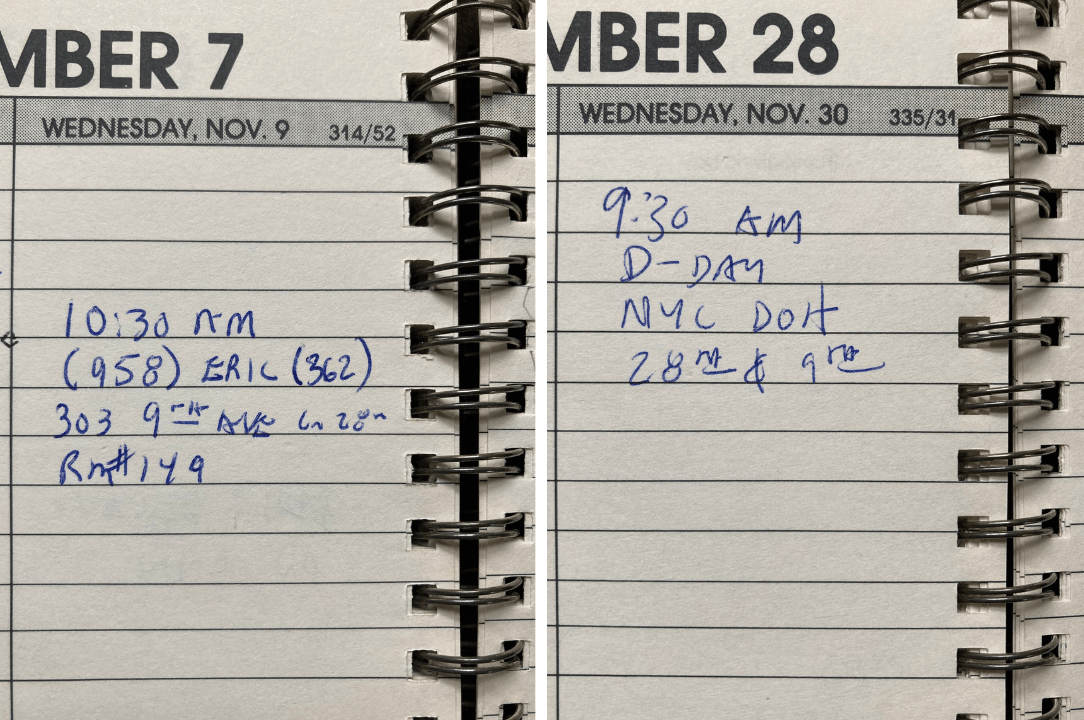 MBER 7
WEDNESDAY, NOV. 9 314/52
10:30 AM
(958) ERIC (362)
303 9TH AVE
Rm#149
MBER 28
WEDNESDAY, NOV. 30 335/31
9:30 AM
D-DAY
NYC DOH
28TH & 9TH